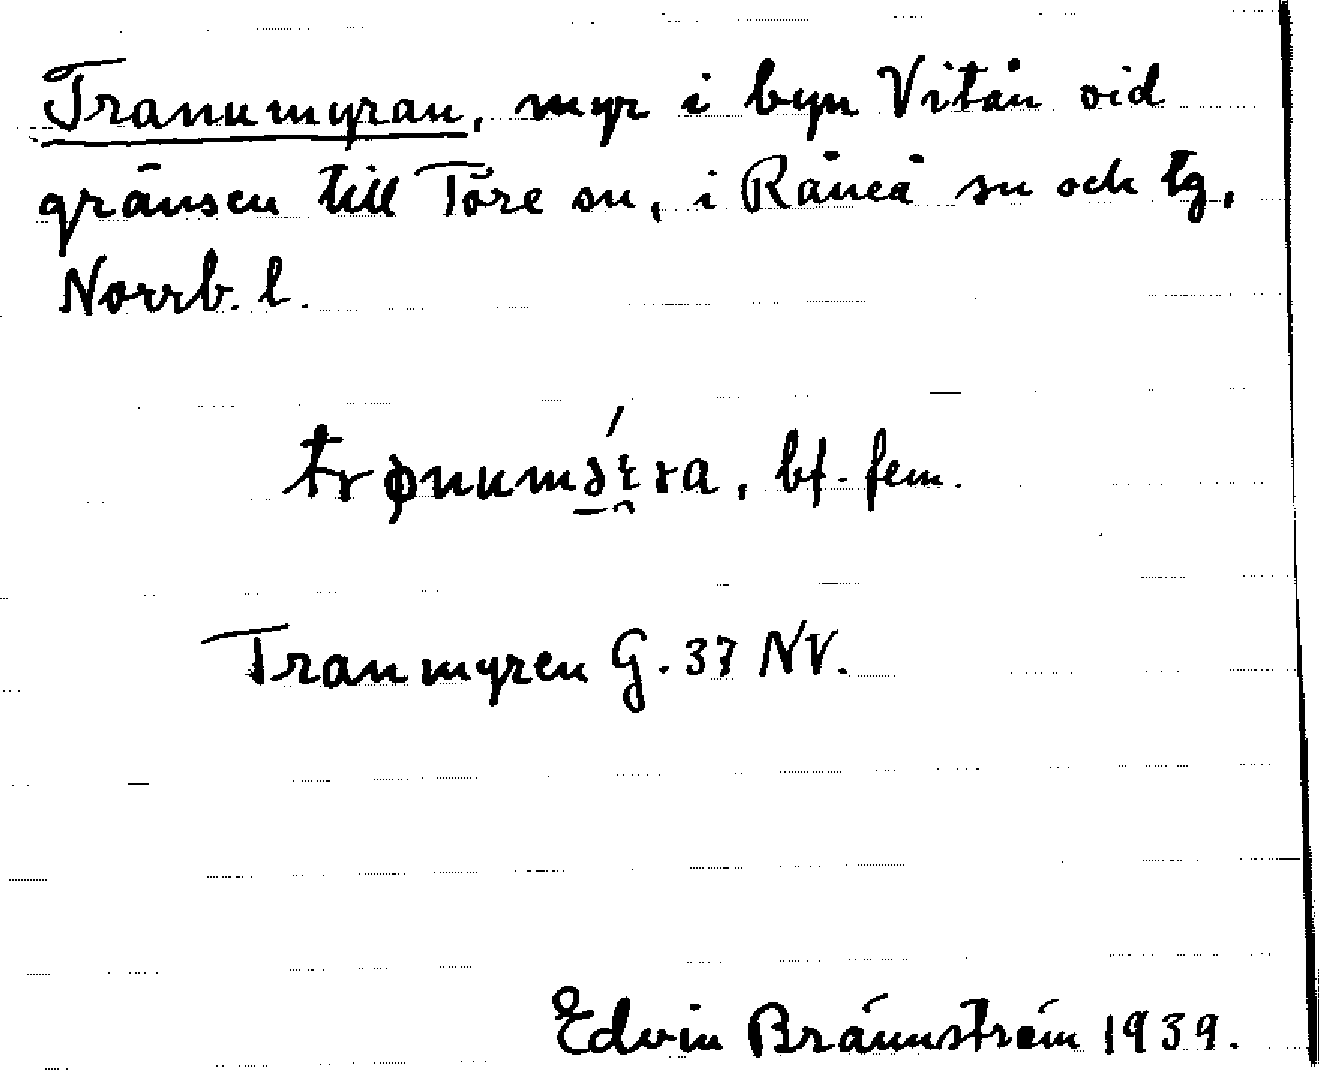 Tranumyran, myr i byn Vitån vid
gränsen till Töre sn, i Råneå sn och tg,
Norrb. l.
bf. fem.
Tranmyren G. 37 NV.
Edvin Brännström 1939.